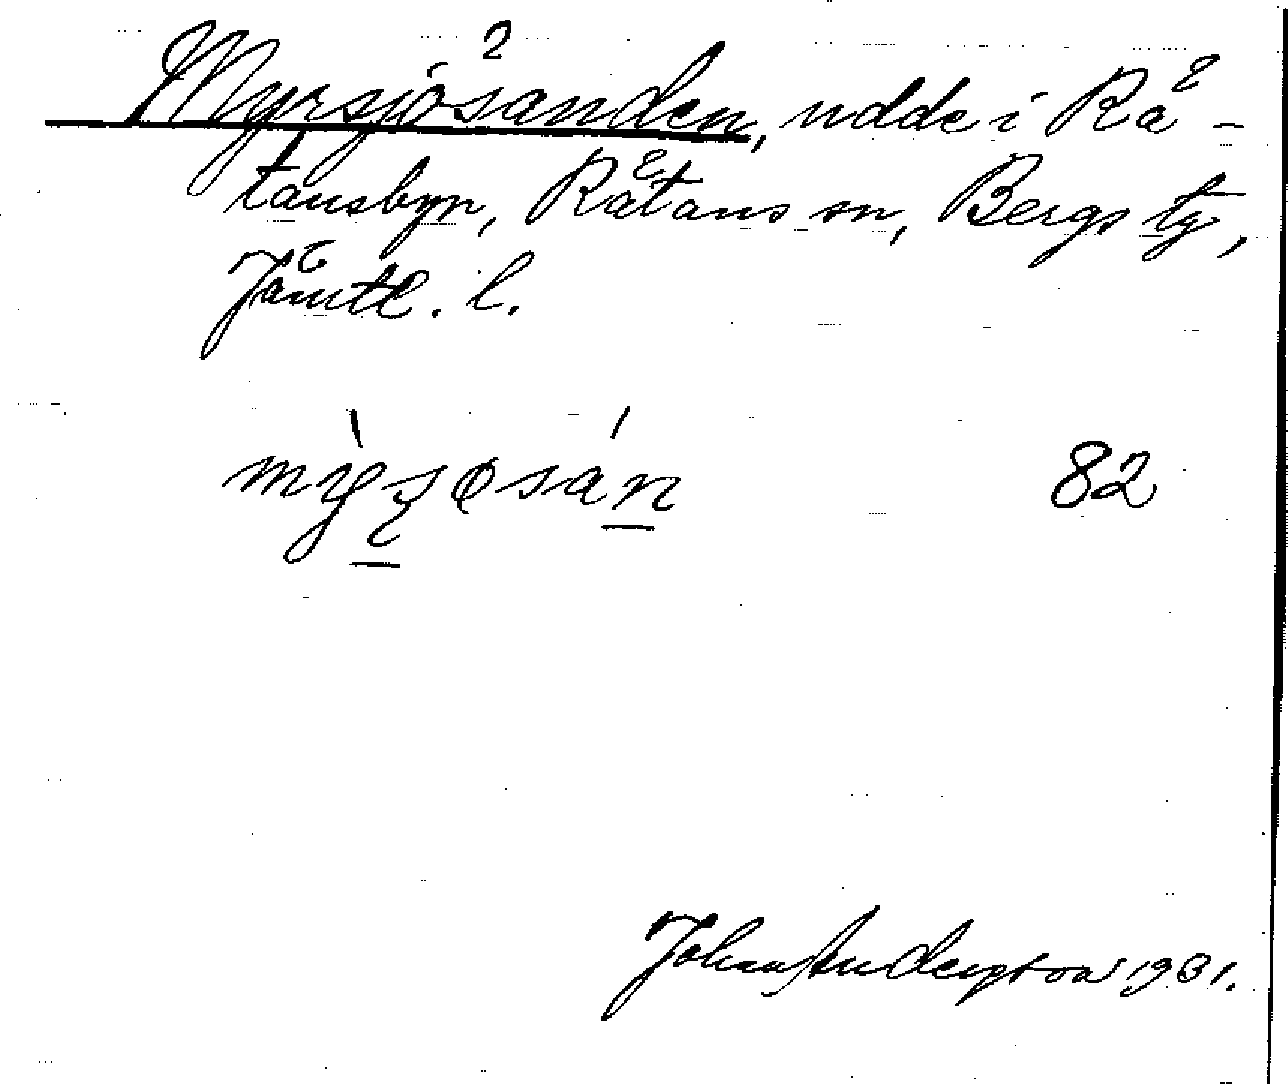 Myrsjösanden, udde i Rå-
tansbyn, Råtans sn, Bergs tg,
Jämtl. l.
82
Johan Andersson 1931.